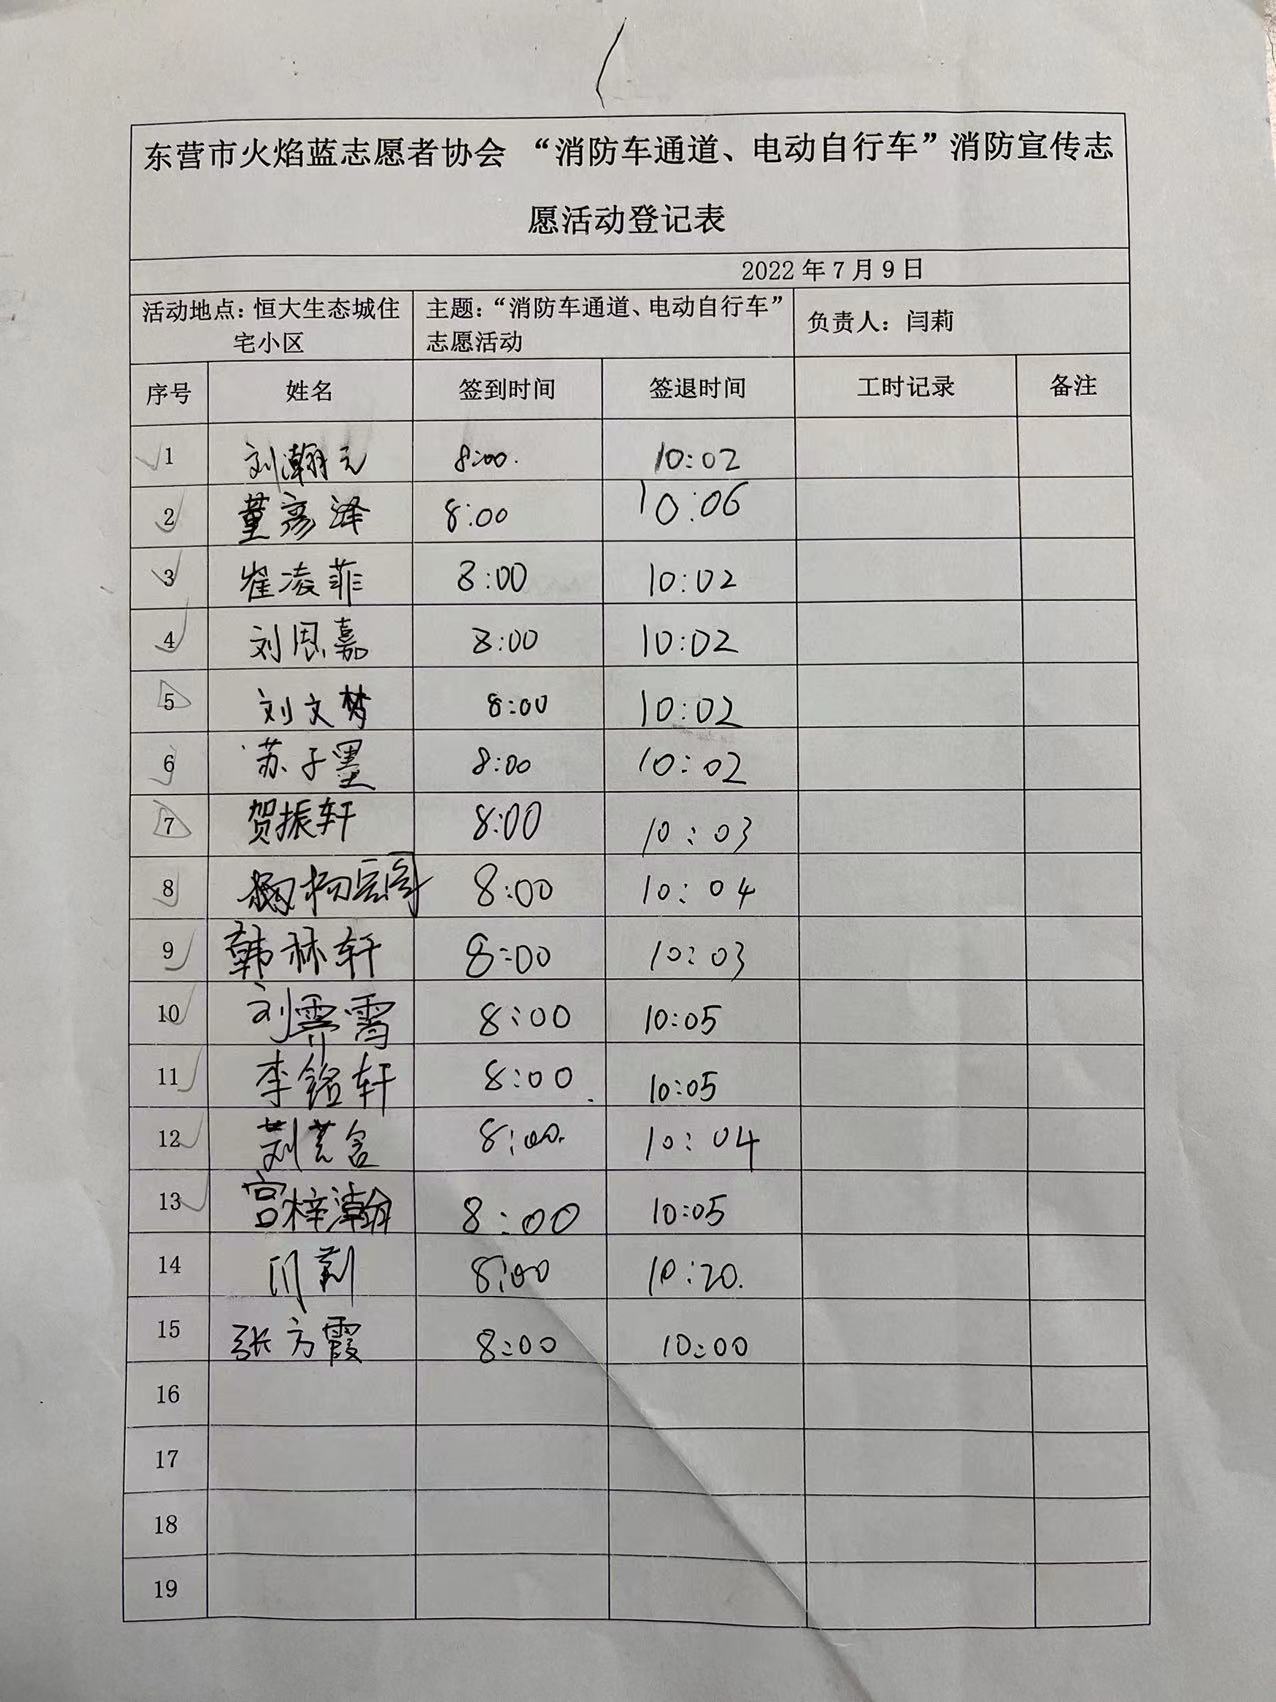 东营市火焰蓝志愿者协会 “消防车通道、电动自行车”消防宣传志
愿活动登记表
2022 年 7 月 9 日
活动地点：恒大生态城住
宅小区
主题：“消防车通道、电动自行车”
志愿活动
负责人：闫莉
序号 姓名 签到时间 签退时间 工时记录 备注
1 刘瀚元 8:00. 10:02
2 董彦泽 8:00 10:06
3 崔凌菲 8:00 10:02
4 刘恩嘉 8:00 10:02
5 刘文梦 8:00 10:02
6 苏子墨 8:00 10:02
7 贺振轩 8:00 10:03
8 8:00 10:04
9 韩林轩 8:00 10:03
10 刘霁霄 8:00 10:05
11 李铭轩 8:00 10:05
12 8:00. 10:04
13 宫梓瀚 8:00 10:05
14 闫莉 8:00 10:20.
15 张方霞 8:00 10:00
16
17
18
19